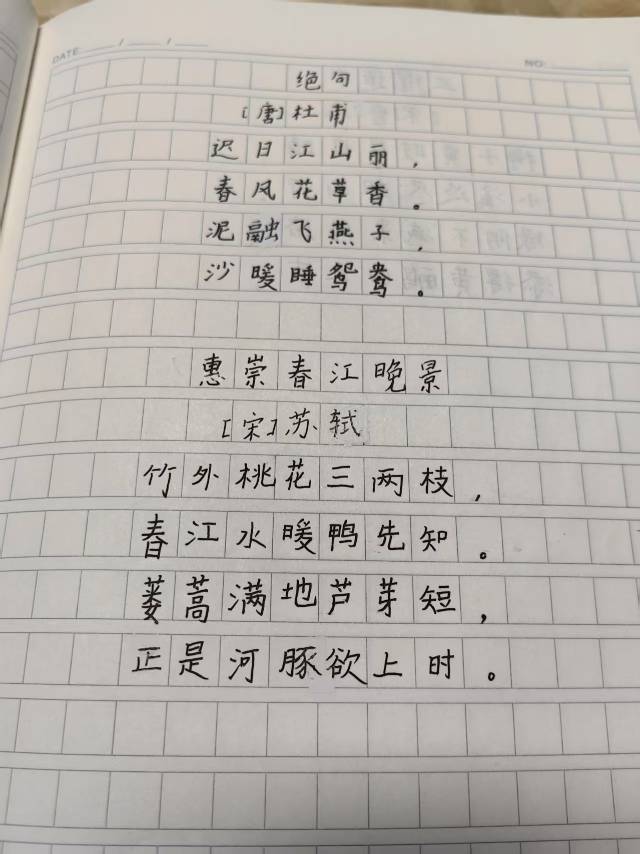 DATE / /
NO:
绝句
[唐]杜甫
迟日江山丽，
春风花草香。
泥融飞燕子，
沙暖睡鸳鸯。
惠崇春江晚景
[宋]苏轼
竹外桃花三两枝，
春江水暖鸭先知。
蒌蒿满地芦芽短，
正是河豚欲上时。